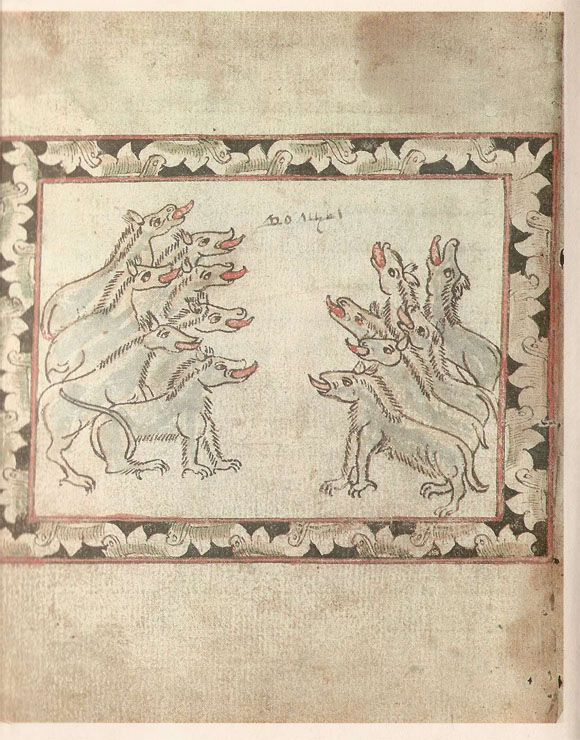 волцы